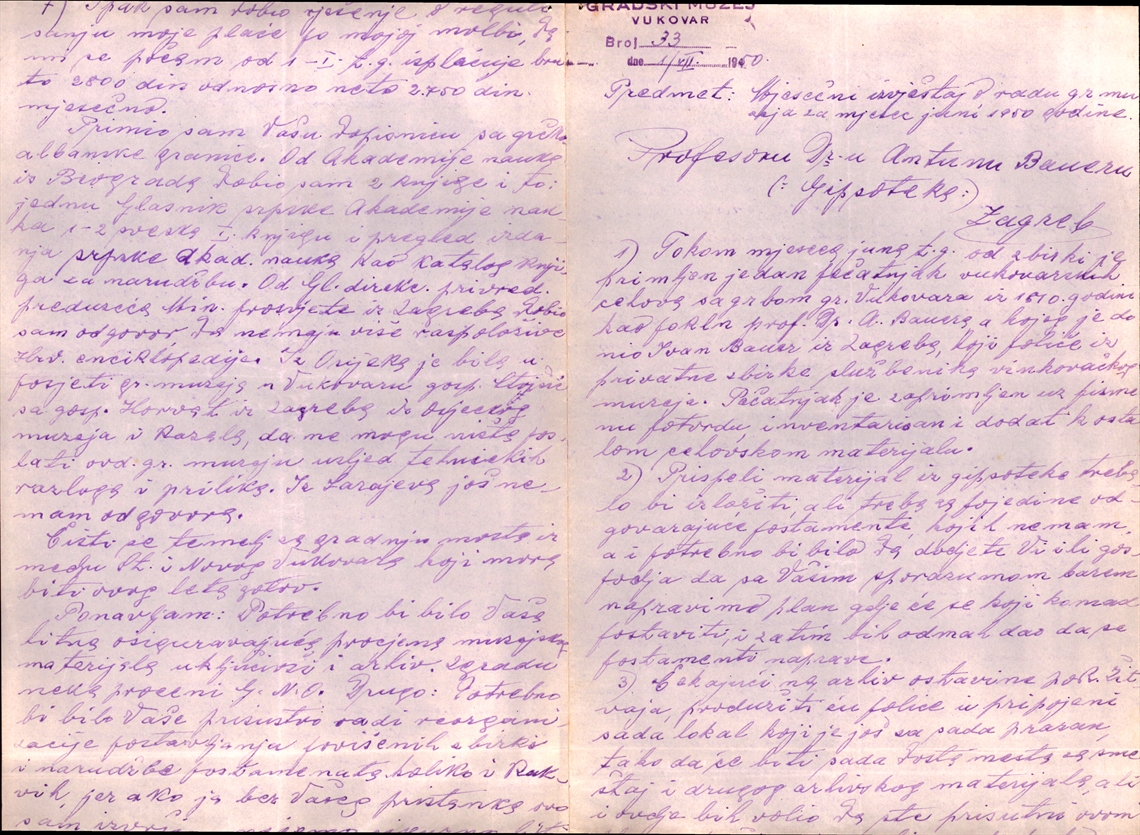 7) Ipak sam dobio rješenje o reguli-
sanju moje plaće po mojoj molbi, da
mi se počam od 1-I- t.g. isplaćuje bru-
to 2800 din odnosno neto 2.750 din.
mjesečno.
Primio sam Vašu dopisnicu sa grčko
albanske granice. Od Akademije nauka
iz Beograda dobio sam 2 knjige i to:
jednu Glasnik srpske Akademije nau-
ka 1-2 sveska I. knjigu i pregled izda-
nja srpske Akad. nauka kao katalog knji-
ga za narudžbu. Od Gl. direkc. privred.
preduzeća Min. prosvjete iz Zagreba dobio
sam odgovor, da nemaju više raspoložive
Hrv. enciklopedije. Iz Osijeka je bila u
posjeti gr. muzeja u Vukovaru gosp.
sa gosp. Horvat iz Zagreba iz Osječkog
muzeja i kazala, da ne mogu ništa pos-
lati ovd. gr. muzeju usljed tehničkih
razloga i prilika. Iz Sarajeva još ne-
mam odgovora.
Čisti se temelj za gradnju mosta iz
među St. i Novog Vukovara koji mora
biti ovog leta gotov.
Ponavljam: Potrebno bi bilo Vaša
hitna osiguravajuća procjena muzejskog
materijala uključivši i arhiv. Zgradu
neka proceni G.N.O. Drugo: Potrebno
bi bilo Vaše prisustvo radi reorgani-
zacije postavljanja povišenih zbirki
i narudžbe postamenata koliko i kak-
vih, jer ako ja bez Vašeg pristanka ovo
sam
GRADSKI MUZEJ
VUKOVAR
Broj 33
dne 1/VII. 1950.
Predmet: Mjesečni izvještaj o radu gr. mu-
zeja za mjesec juni 1950 godine.
Profesoru Dr-u Antunu Baueru
(: Gipsoteka :)
Zagreb
1) Tokom mjeseca juna t.g. od zbirki je
primljen jedan pečatnjak vukovarskih
cehova sa grbom gr. Vukovara iz 1810. godine
kao poklon prof. Dr. A. Bauera, a kojeg je do
nio Ivan Bauer iz Zagreba, koji potiče iz
privatne zbirke službenika vinkovačkog
muzeja. Pečatnjak je zaprimljen uz pisme
nu potvrdu, inventarisan i dodat k osta
lom cehovskom materijalu.
2) Prispeli materijal iz gipsoteke treba
lo bi izložiti, ali treba za pojedine od-
govarajuće postamente, kojih nemam,
a i potrebno bi bilo da dodjete Vi ili gos-
podja da sa Vašim sporazumom barem
napravimo plan gdje će se koji komad
postaviti, i zatim bih odmah dao da se
postamenti naprave.
3) Čekajući na arhiv ostavine pok.
produžiti ću police u pripojeni
sada lokal koji je još za sada prazan,
tako da će biti sada dosta mesta za sme
štaj i drugog arhivskog materijala, ali
i ovdje bih volio da ste prisutni ovom